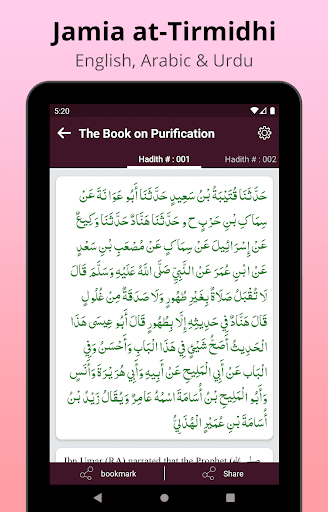 Jamia at-Tirmidhi
English, Arabic & Urdu
5:20
The Book on Purification
Hadith # : 001
Hadith # : 002
حَدَّثَنَا قُتَيْبَةُ بْنُ سَعِيدٍ حَدَّثَنَا أَبُو عَوَانَةَ عَنْ
سِمَاكِ بْنِ حَرْبٍ ح و حَدَّثَنَا هَنَّادٌ حَدَّثَنَا وَكِيعٌ
عَنْ إِسْرَائِيلَ عَنْ سِمَاكٍ عَنْ مُصْعَبِ بْنِ سَعْدٍ
عَنْ ابْنِ عُمَرَ عَنْ النَّبِيِّ صَلَّى اللَّهُ عَلَيْهِ وَسَلَّمَ قَالَ لَا
تُقْبَلُ صَلَاةٌ بِغَيْرِ طُهُورٍ وَلَا صَدَقَةٌ مِنْ غُلُولٍ
قَالَ هَنَّادٌ فِي حَدِيثِهِ إِلَّا بِطُهُورٍ قَالَ أَبُو عِيسَى هَذَا
الْحَدِيثُ أَصَحُّ شَيْئٍ فِي هَذَا الْبَابِ وَأَحْسَنُ وَفِي
الْبَاب عَنْ أَبِي الْمَلِيحِ عَنْ أَبِيهِ وَأَبِي هُرَيْرَةَ وَأَنَسٍ
وَأَبُو الْمَلِيحِ بْنُ أُسَامَةَ اسْمُهُ عَامِرٌ وَيُقَالُ زَيْدُ بْنُ
أُسَامَةَ بْنِ عُمَيْرٍ الْهُذَلِيُّ
Ibn Umar (RA) narrated that the Prophet (صلى الله
bookmark
Share